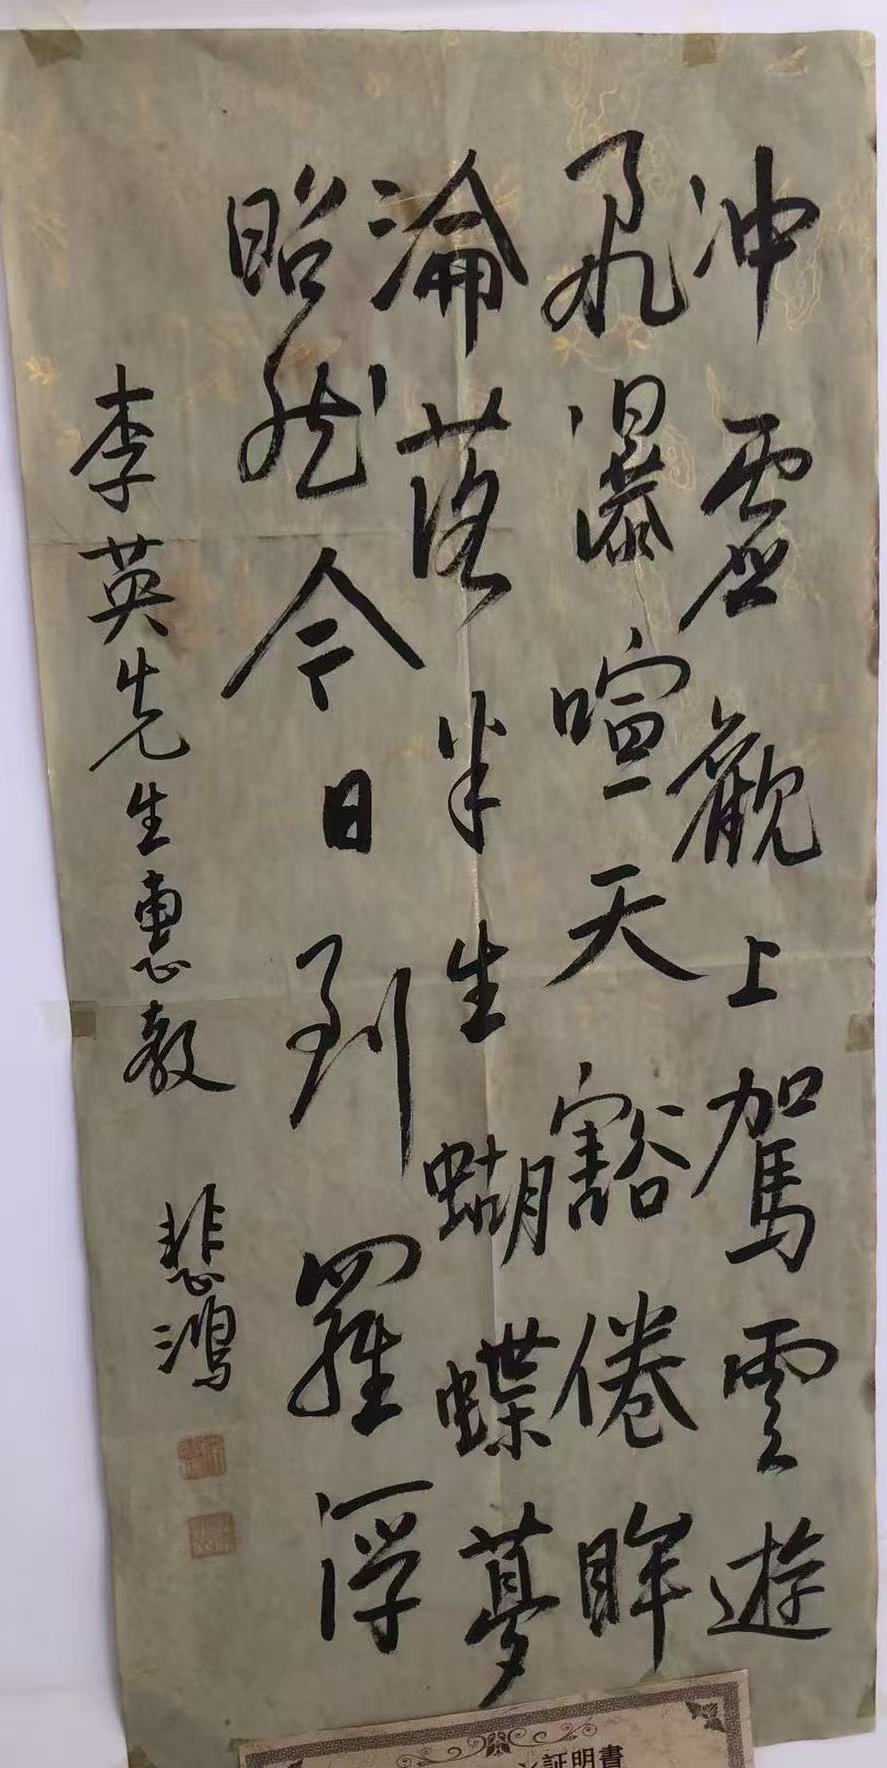 冲虛觀上駕雲遊
飛瀑喧天豁倦眸
淪落半生蝴蝶夢
昭然今日到羅浮
李英先生惠教
悲鴻
証明書